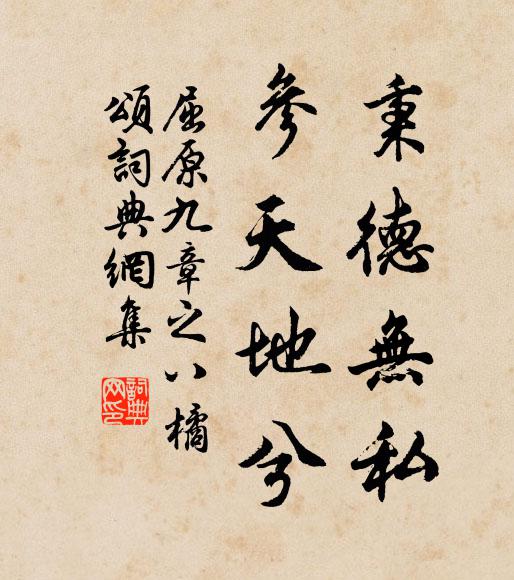 秉德無私
參天地兮
屈原九章之八橘
頌詞典網集
詞典
网印